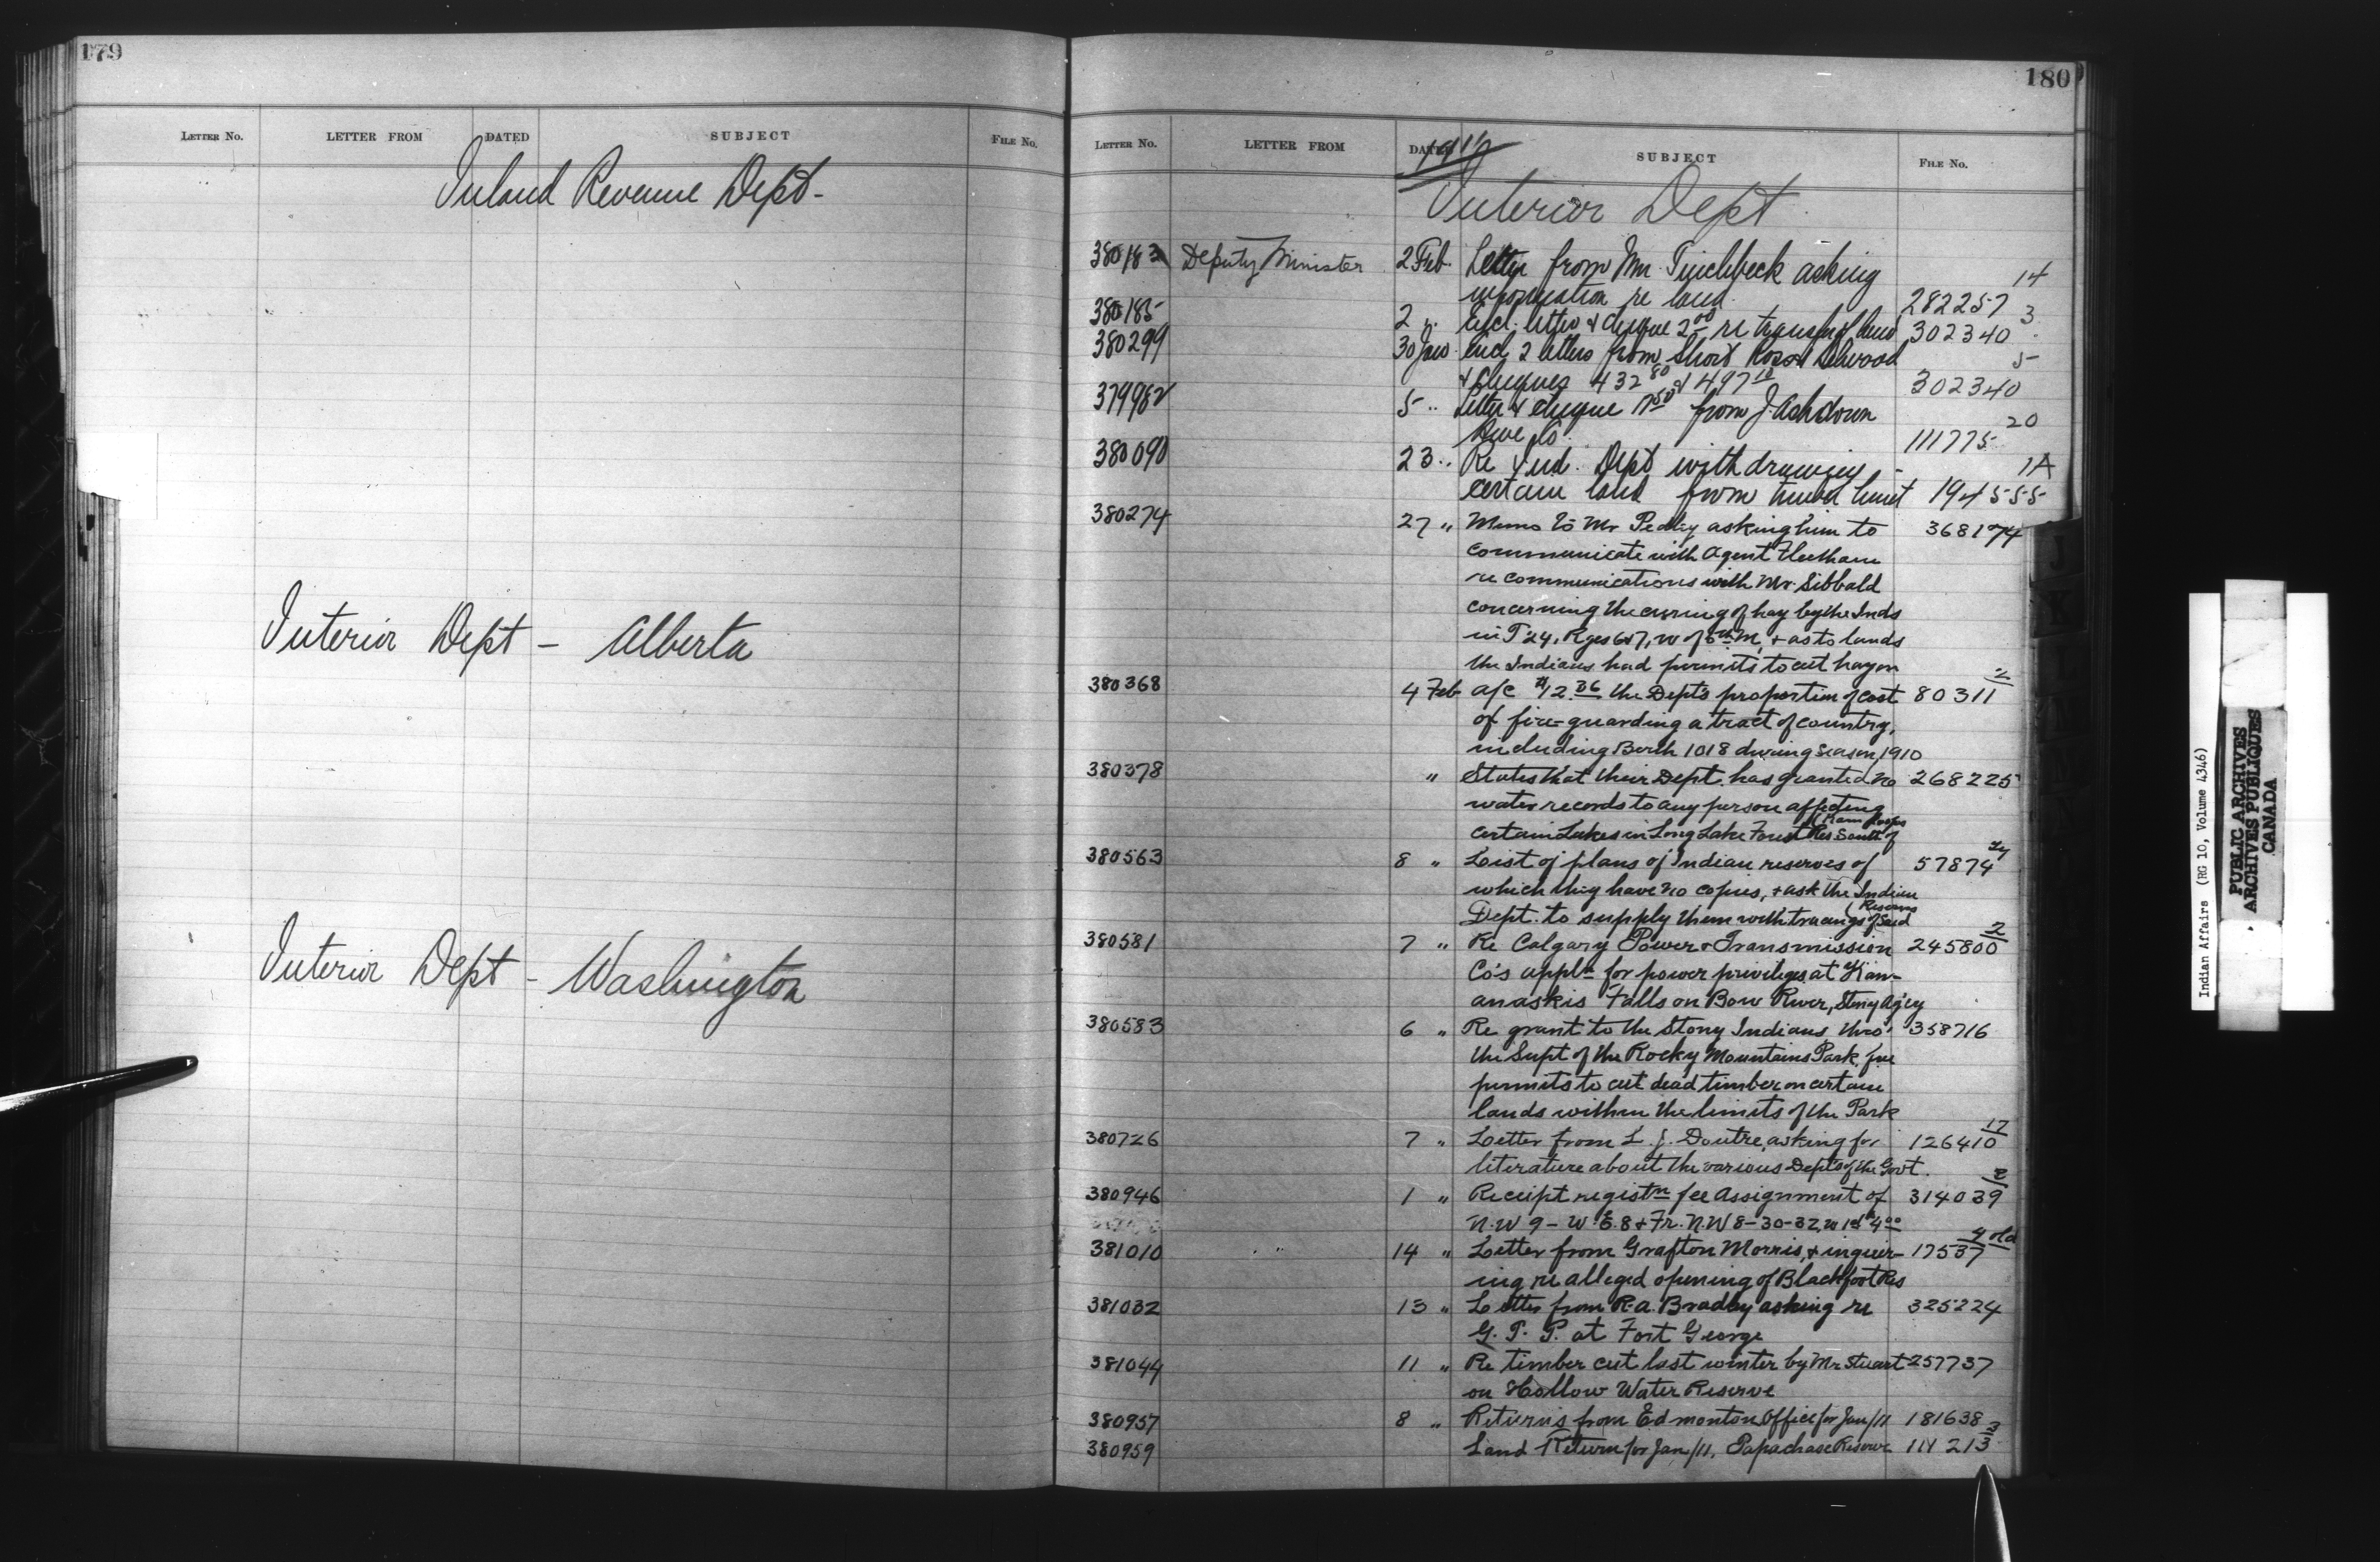 179
LETTER No. LETTER FROM DATED SUBJECT FILE No.
Inland Revenue Dept-
Interior Dept - Alberta
Interior Dept - Washington
180
LETTER No. LETTER FROM DATED SUBJECT FILE No.
1911
Interior Dept
380183 Deputy Minister 2 Feb. Letter from Mr Pinchbeck asking 14
information re land 282257
380185 2 " Encl. letter & cheque 2 00 re transfer of land 302340 3
380299 30 Jan Encl 2 letters from Short Ross Selwood 5
& cheques 432 80 & 497 10 302340
379982 5 " Letter & cheque from J. Ashdown 20
Hdwe Co. 111775
380090 23 " Re Ind. Dept withdrawing 1A
certain land from timber limit 194555
380274 27 " Memo to Mr Pedley asking him to 368174
communicate with Agent Fleetham
re communications with Mr Sibbald
concerning the curing of hay by the Inds
in T 24, Rges 6&7, W of 5th M, & as to lands
the Indians had permits to cut hay on
380368 4 Feb a/c $12.36 the Dept's proportion of cost 80311 2
of fire-guarding a tract of country,
including Berth 1018 during season, 1910
380378 " States that their Dept. has granted no 268225
water records to any person affecting
certain Lakes in Long Lake Forest Res South of
(Kamloops
380563 8 " List of plans of Indian reserves of 57874
which they have no copies, & ask the Indian
Dept. to supply them with tracings of said
(Reserves
380581 7 " Re Calgary Power & Transmission 245800 2
Co's appln for power privileges at Kan-
anaskis Falls on Bow River, Stony Ag'cy
380583 6 " Re grant to the Stony Indians thro' 358716
the Supt of the Rocky Mountains Park, free
permits to cut dead timber on certain
lands within the limits of the Park
380726 7 " Letter from L. J. Doutre, asking for 126410 17
literature about the various Depts of the Govt.
380946 1 " Receipt registn fee Assignment of 314039 2
N.W 9 - W. E. 8 & Fr. N.W 8-30-32, W 1st 4 00
381010 " 14 " Letter from Grafton Morris, & inquir- 17537 4 old
ing re alleged opening of Blackfoot Res
381032 13 " Letter from R.A. Bradley asking re 325224
G. T. P. at Fort George
381044 11 " Re timber cut last winter by Mr Stuart 257737
on Hollow Water Reserve
380957 8 " Returns from Edmonton Office for Jan/11 181638
380959 Land Return for Jan/11, Papachase Reserve 114213 3
Indian Affairs (RG 10, Volume 4346)
PUBLIC ARCHIVES
ARCHIVES PUBLIQUES
CANADA